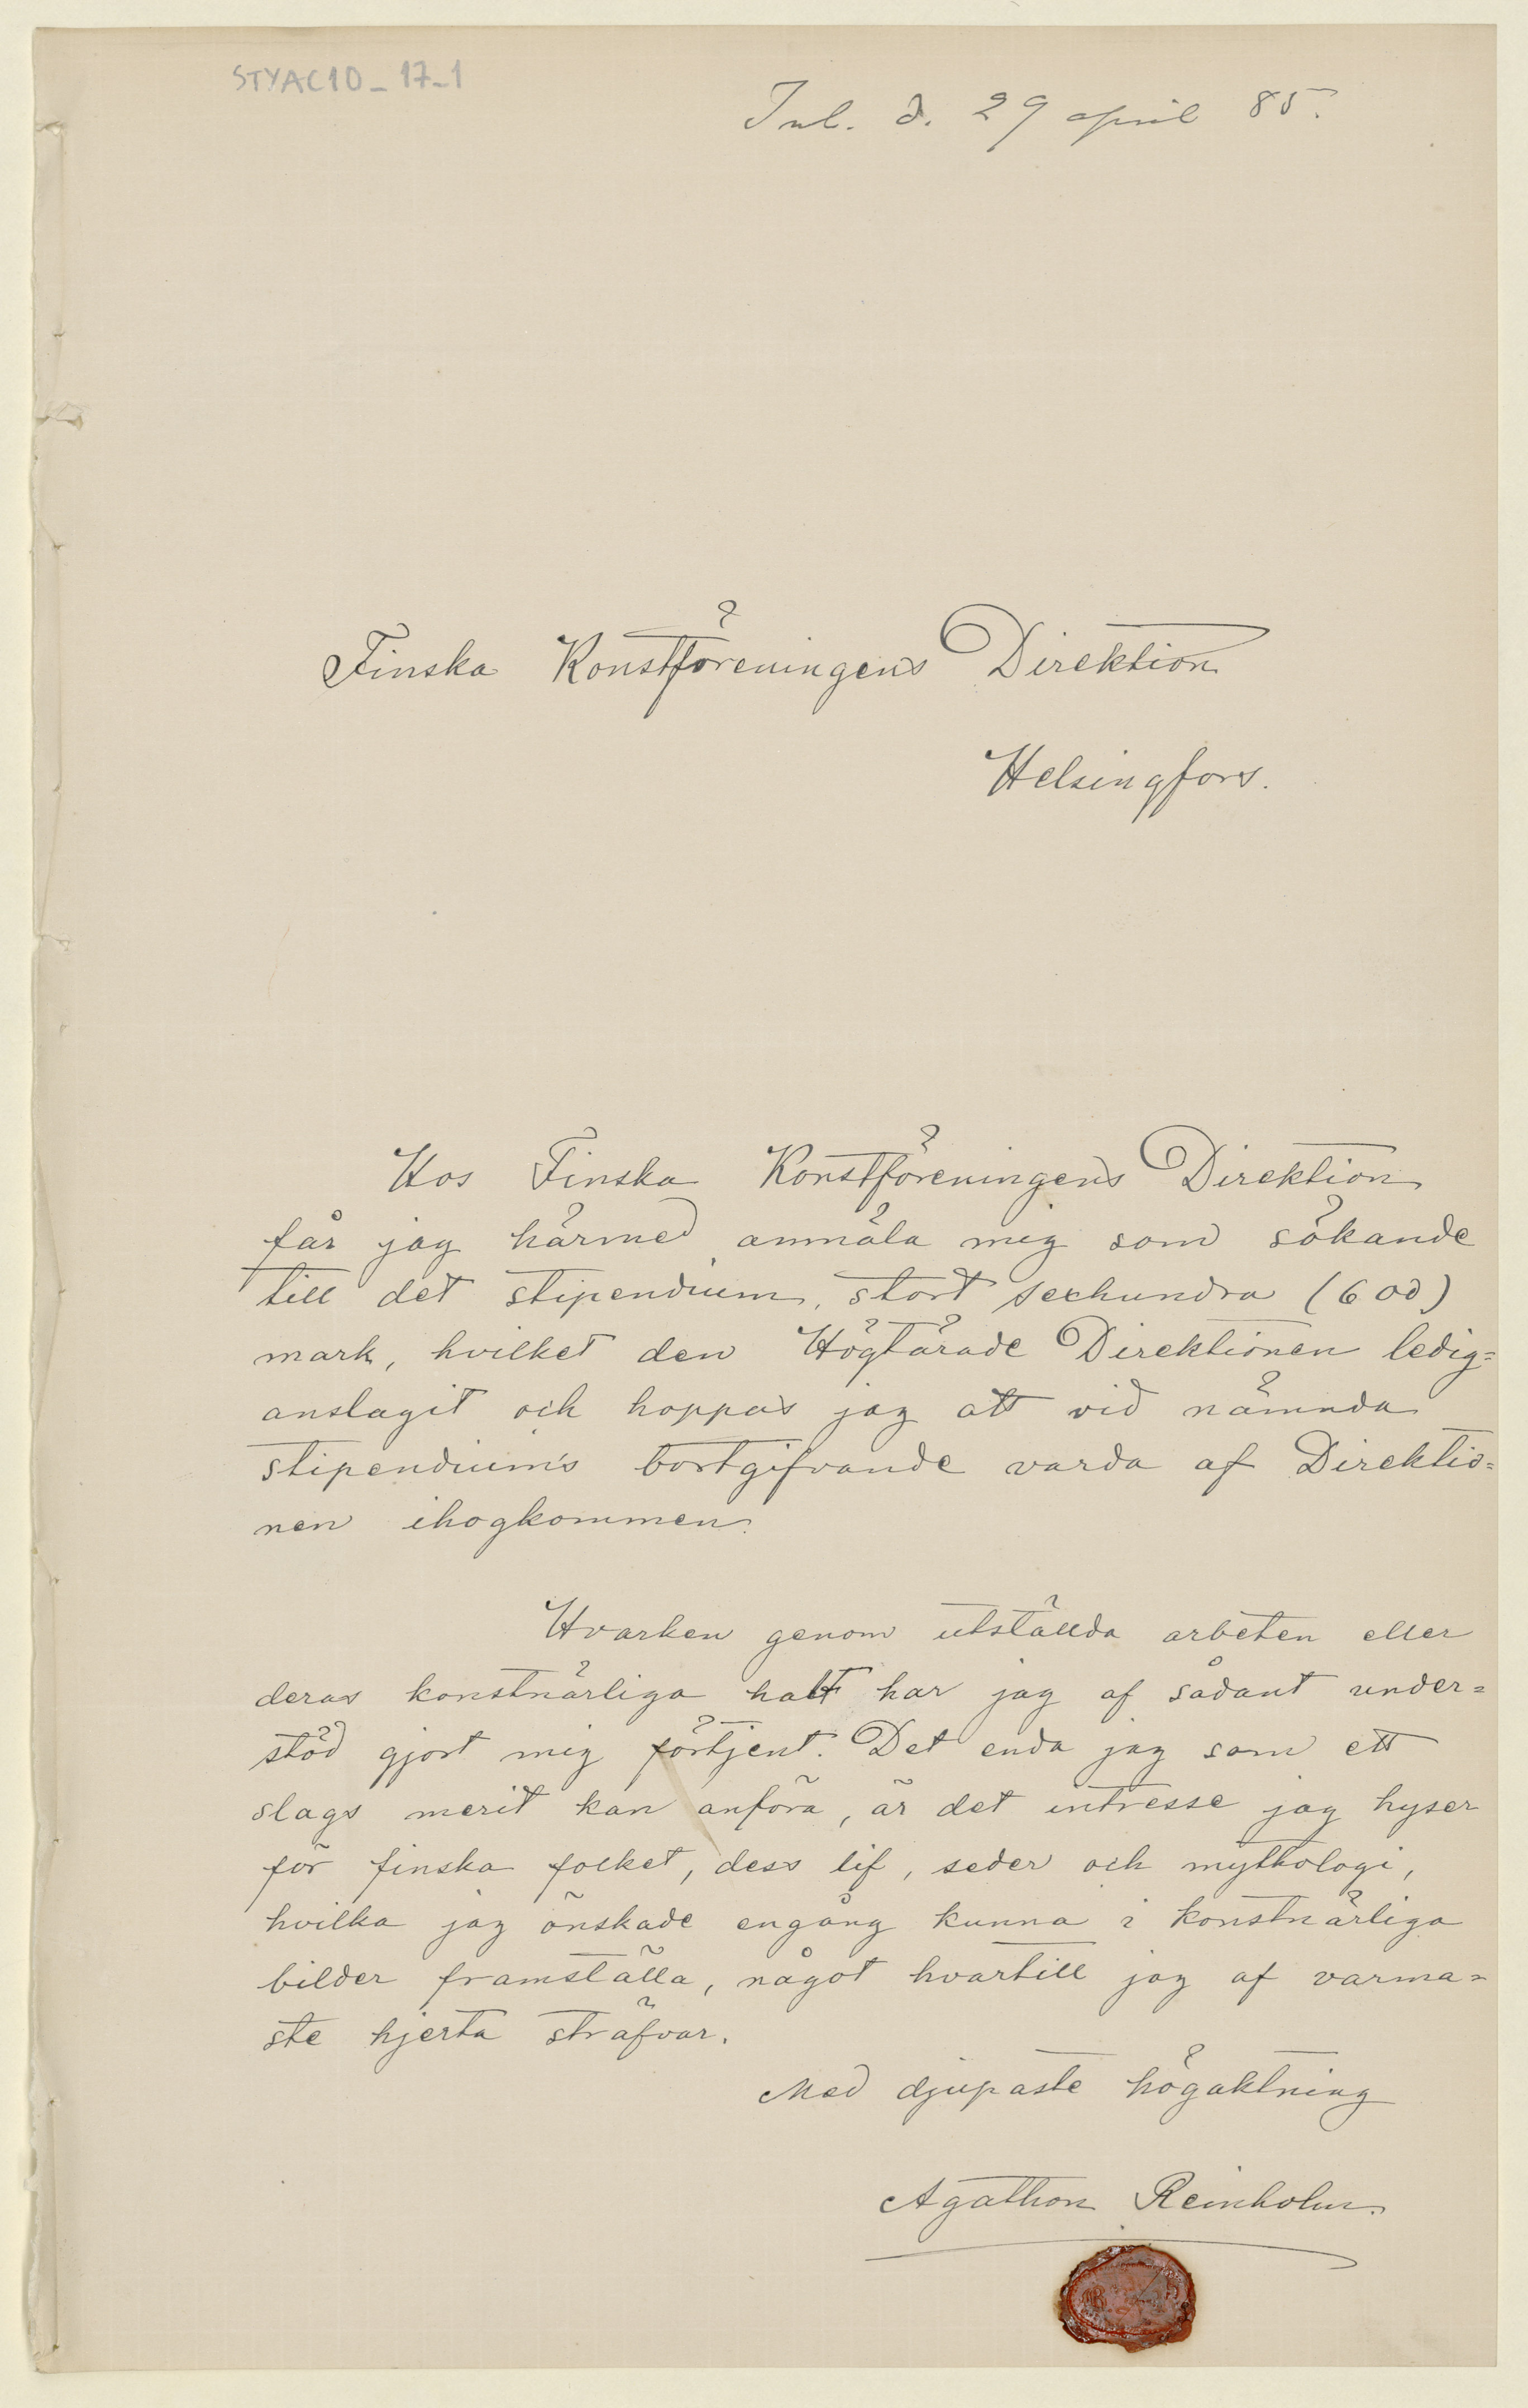 STYAC10_17_1
Inl. d. 29 april 85.
Finska Konstföreningens Direktion
Helsingfors.
Hos Finska Konstföreningens Direktion
får jag härmed anmäla mig som sökande
till det stipendium, stort sexhundra (600)
mark, hvilket den Högtärade Direktionen ledig=
anslagit och hoppas jag att vid nämnda
stipendiums bortgifvande varda af Direktio=
nen ihogkommen.
Hvarken genom utställda arbeten eller
deras konstnärliga halt har jag af sådant under=
stöd gjort mig förtjent. Det enda jag som ett
slags merit kan anföra, är det intresse jag hyser
för finska folket, dess lif, seder och mythologi,
hvilka jag önskade engång kunna i konstnärliga
bilder framställa, något hvartill jag af varma=
ste hjerta sträfvar.
Med djupaste högaktning
Agathon Reinholm.